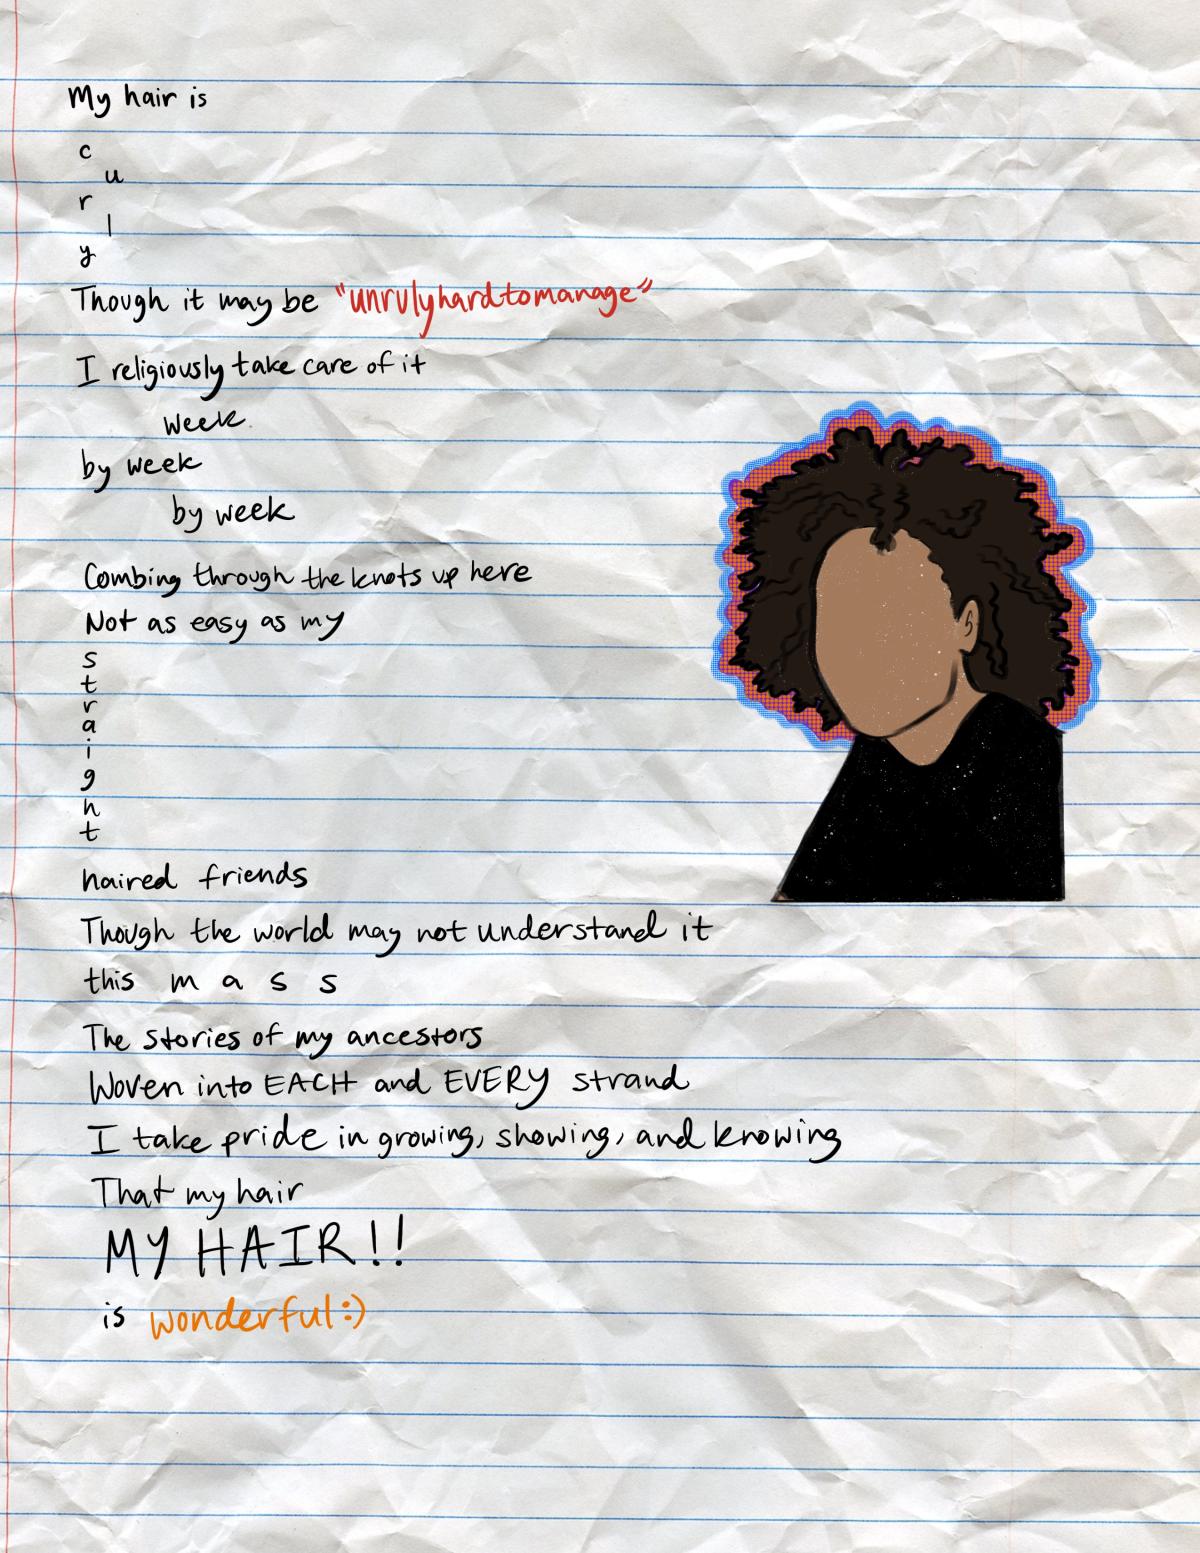 My hair is
c
u
r
l
y
Though it may be "unrulyhardtomanage"
I religiously take care of it
week
by week
by week
Combing through the knots up here
Not as easy as my
s
t
r
a
i
g
h
t
haired friends
Though the world may not understand it
this m a s s
The stories of my ancestors
Woven into EACH and EVERY strand
I take pride in growing, showing, and knowing
That my hair
MY HAIR!!
is wonderful:)